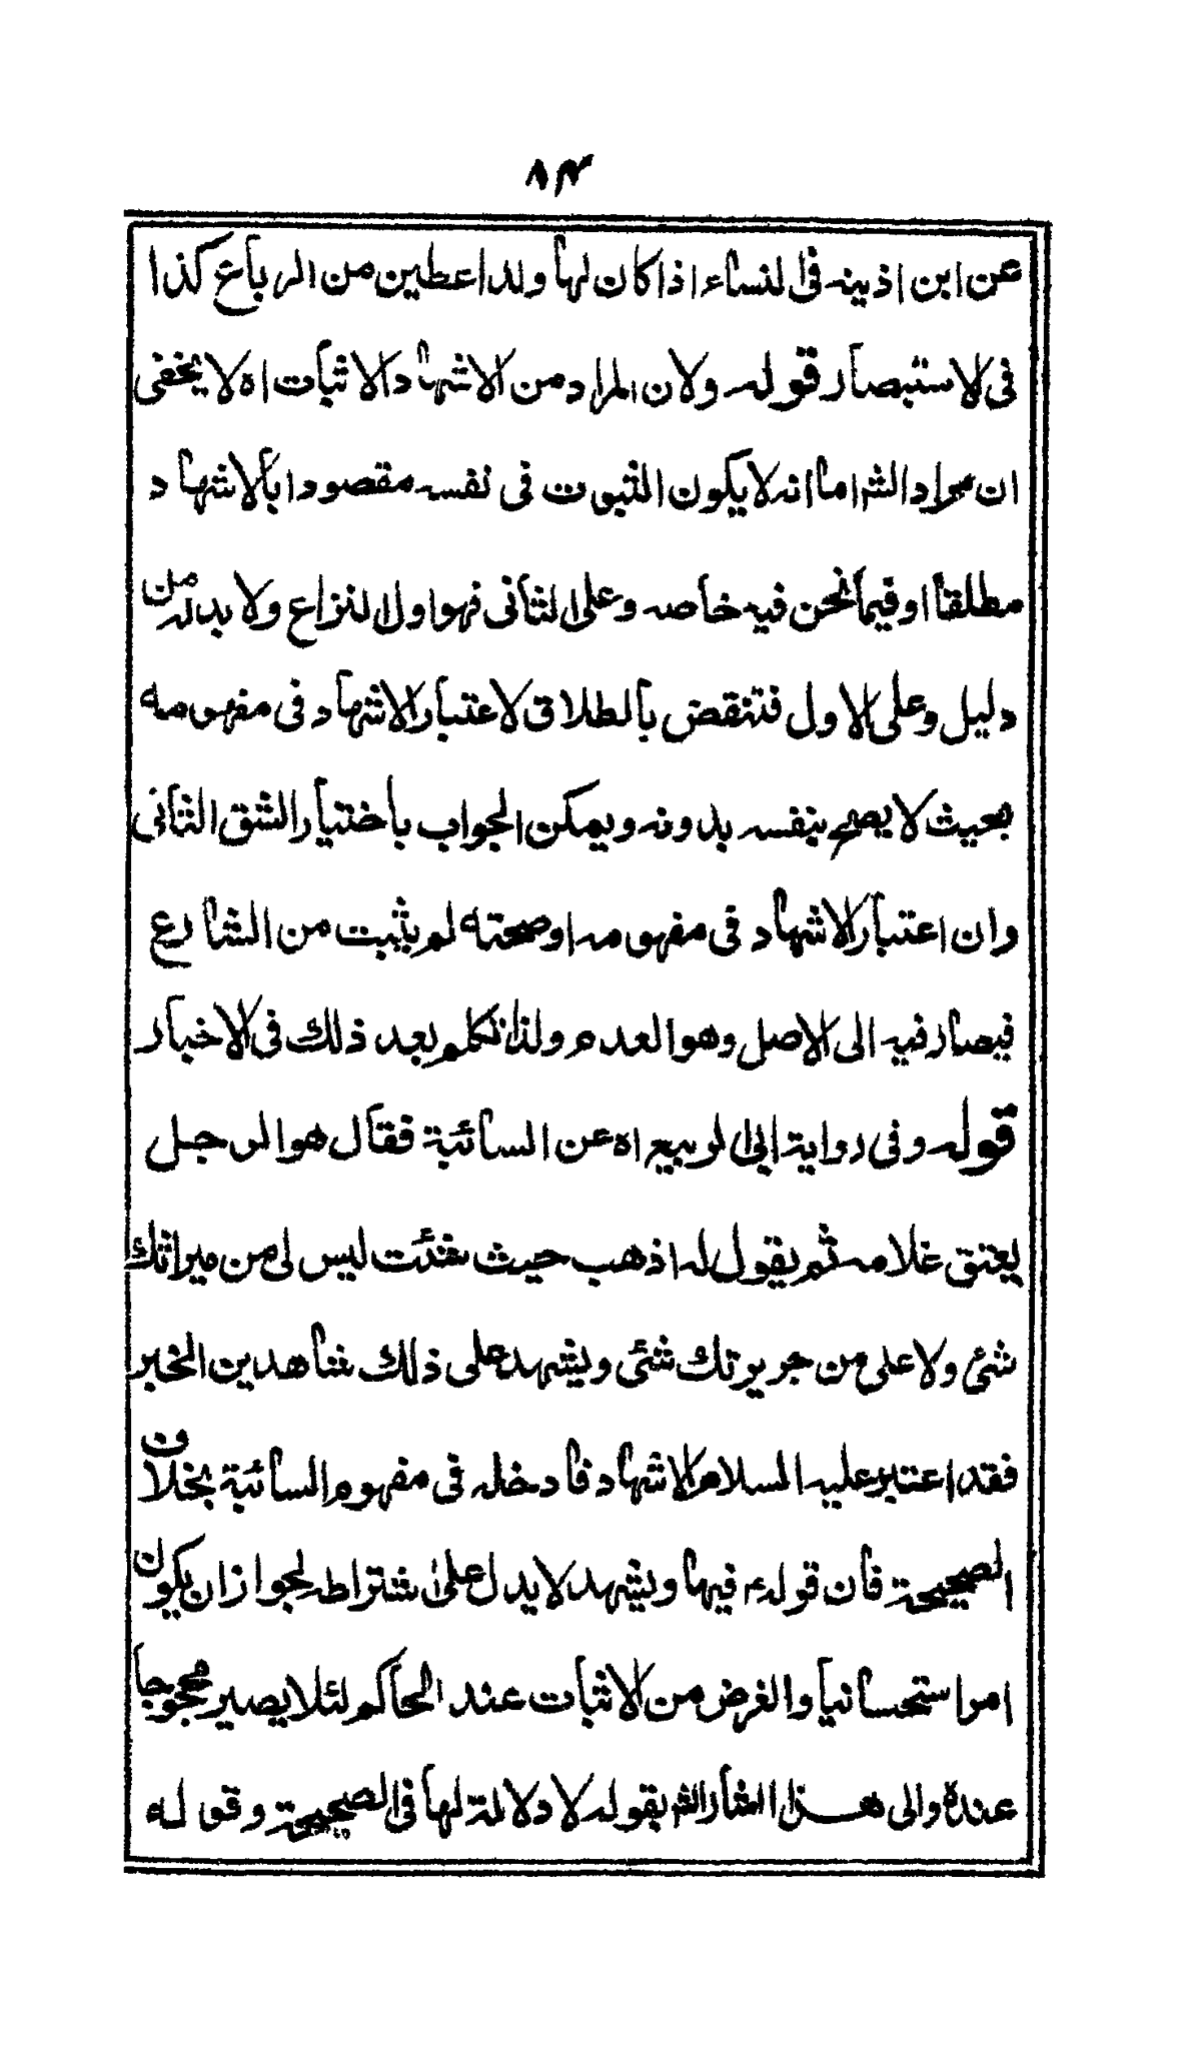 ٨٤
عن ابن اذينه فى النساء اذا كان لها ولد اعطين من الرباع كذا
فى الاستبصار قوله ولان المراد من الاشهاد الاثبات اه لا يخفى
ان مراد الشم اما انه لا يكون الثبوت فى نفسه مقصودا بالاشهاد
مطلقا او فيما نحن فيه خاصه وعلى الثانى فهو اول النزاع ولا بد له من
دليل وعلى الاول فتنقض بالطلاق لاعتبار الاشهاد فى مفهومه
بحيث لا يصح بنفسه بدونه ويمكن الجواب باختيار الشق الثانى
وان اعتبار الاشهاد فى مفهومه او صحته لم يثبت من الشارع
فيصار فيه الى الاصل وهو العدم ولذا تكلم بعد ذلك فى الاخبار
قوله وفى رواية ابى الربيع اه عن السائبة فقال هو الرجل
يعتق غلامه ثم يقول له اذهب حيث شئت ليس لى من ميراثك
شئ ولا على من جريرتك شئ ويشهد على ذلك شاهدين الخبر
فقد اعتبر عليه السلام الاشهاد فادخله فى مفهوم السائبة بخلاف
الصحيحة فان قوله ع فيها ويشهد لا يدل على اشتراطه لجواز ان يكون
امرا استحسانيا والغرض من الاثبات عند الحاكم لئلا يصير محجوجا
عنده والى هذا اشار الشم بقوله لا دلالة لها فى الصحيحة وقوله